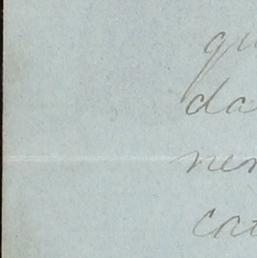 qu
da
ner
cat